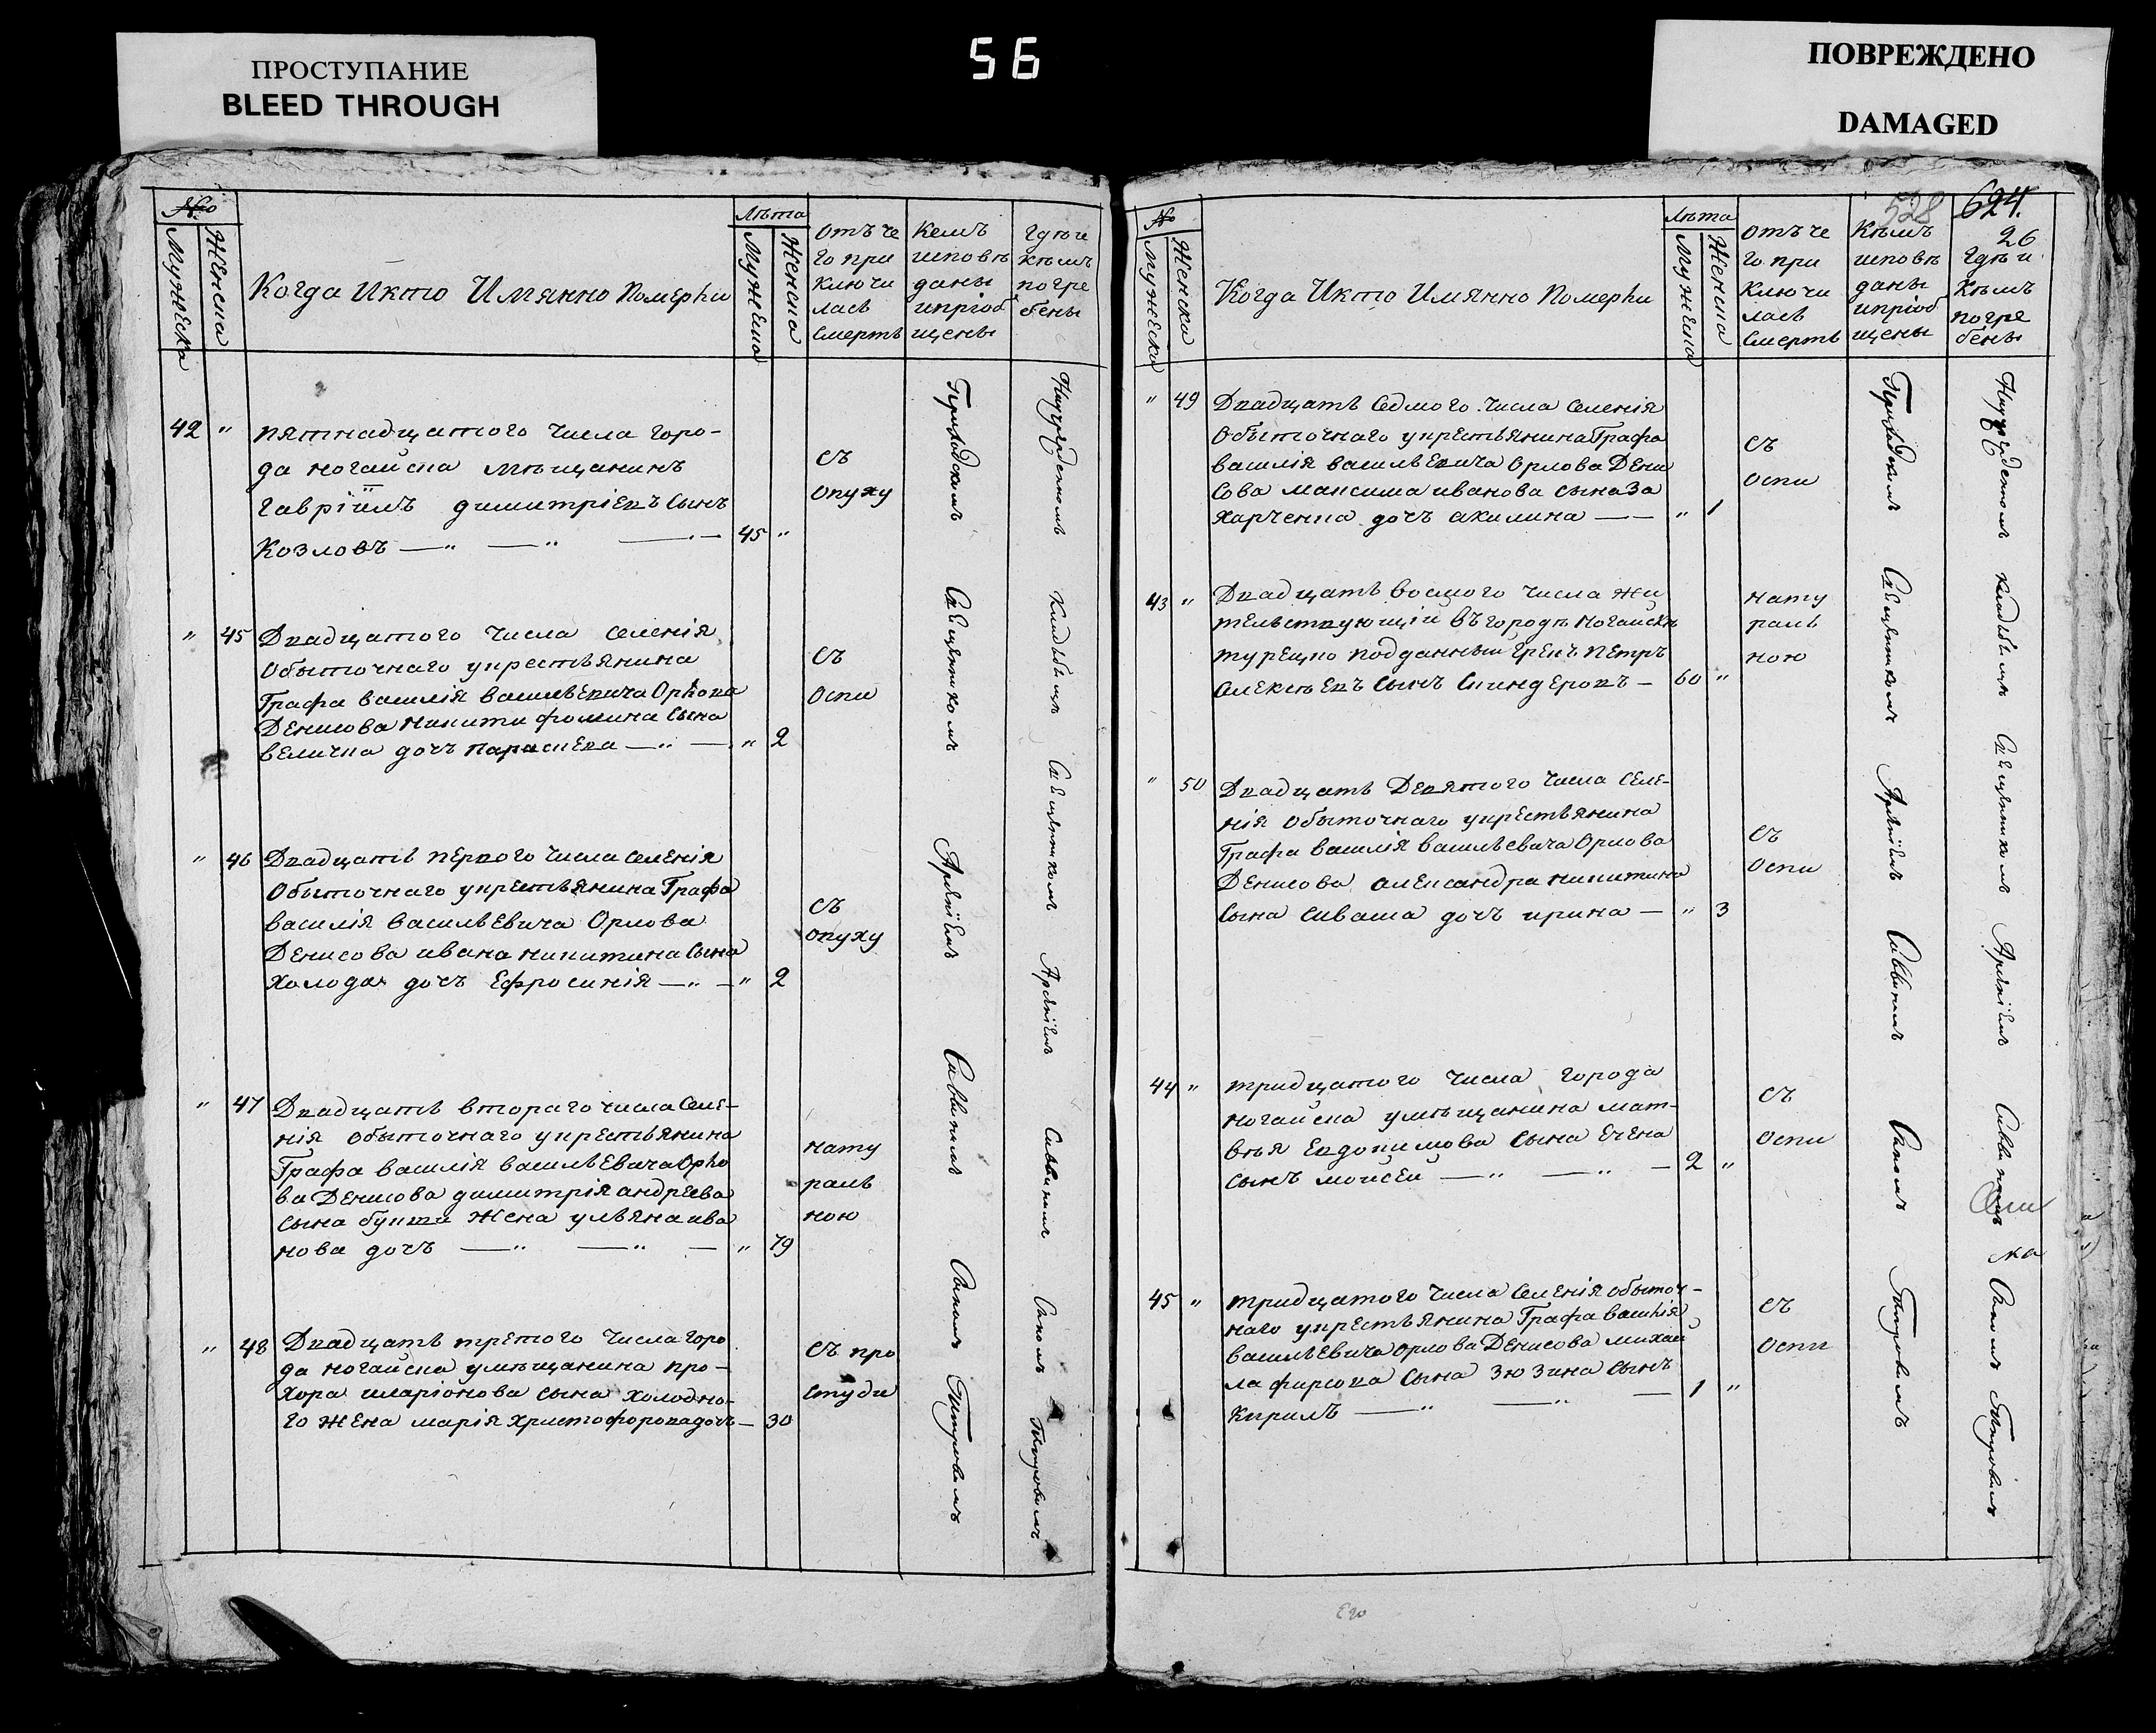 ПРОСТУПАНИЕ
BLEED THROUGH
56
ПОВРЕЖДЕНО
DAMAGED
№
Мужеска
Женска
Когда Икто Имянно Померли
Лѣта
Мужеска
Женска
Отъ че
го при
Ключи
лась
Смерть
Кемъ
исповѣ
даны
ипріоб
щены
Гдѣ и
кѣмъ
погре
бены
42 "
пятнадцатого числа горо-
да ногайска мѣщанинъ
Гавріилъ димитріевъ Сынъ
Козловъ — " — " — 45 "
съ
опуху
" 45
Двадцатого числа селенія
Обыточнаго укрестьянина
Графа василія васильевича Орлова
Денисова никити фомина Сына
величка дочъ параскева — " — " 2
съ
Оспи
" 46
Двадцать первого числа селенія
Обыточнаго укрестьянина Графа
василія васильевича Орлова
Денисова ивана никитина Сына
холода дочъ Ефросинія — " — " 2
съ
опуху
" 47
Двадцать втораго числа Селе-
нія обыточнаго укрестьянина
Графа василія васильевича Орло
ва Денисова димитрія андреева
Сына жена ульяна ива
нова дочъ — " — " — " 79
нату
раль
ною
" 48
Двадцать третого числа горо
да ногайска умѣщанина про-
хора иларіонова сына холодно-
го жена марія христофорова дочъ — 30
съ про
студи
Священникомъ
Савинымъ
Петровымъ
Кладбищѣ Священникомъ
Савинымъ
Петровымъ
528 624.
26
№
Мужеска
Женска
Когда Икто Имянно Померли
Лѣта
Мужеска
Женска
Отъ че
го при
Ключи
лась
Смерть
Кѣмъ
исповѣ
даны
ипріоб
щены
Гдѣ и
Кѣмъ
погре
бены
" 49
Двадцать Седмого числа Селенія
Обыточнаго укрестьянина Графа
василія васильевича Орлова Дени
сова максима иванова сына За
харченка дочъ акилина — — " 1
съ
Оспи
43 "
Двадцать восмого числа жи
тельствующій въ городѣ ногайскѣ
турецко подданный Грекъ Петръ
Алексѣевъ Сынъ — 60 "
нату
раль
ною
" 50
Двадцать Девятого числа Селе-
нія Обыточнаго укрестьянина
Графа василія васильевича Орлова
Денисова александра никитина
Сына Сиваша дочъ ирина — " 3
съ
Оспи
44 "
тридцатого числа города
ногайска умѣщанина мат-
вѣя Евдокимова Сына
сынъ мойсей — " — " — 2 "
съ
Оспи
45 "
тридцатого числа Селенія обыточ-
наго укрестьянина Графа василія
васильевича Орлова Денисова михаи
ла фирсова Сына Зюзина Сынъ
Кирилъ — " — " — 1 "
съ
Оспи
Священникомъ
Савинымъ
Петровымъ
Кладбищѣ Священникомъ
Петровымъ